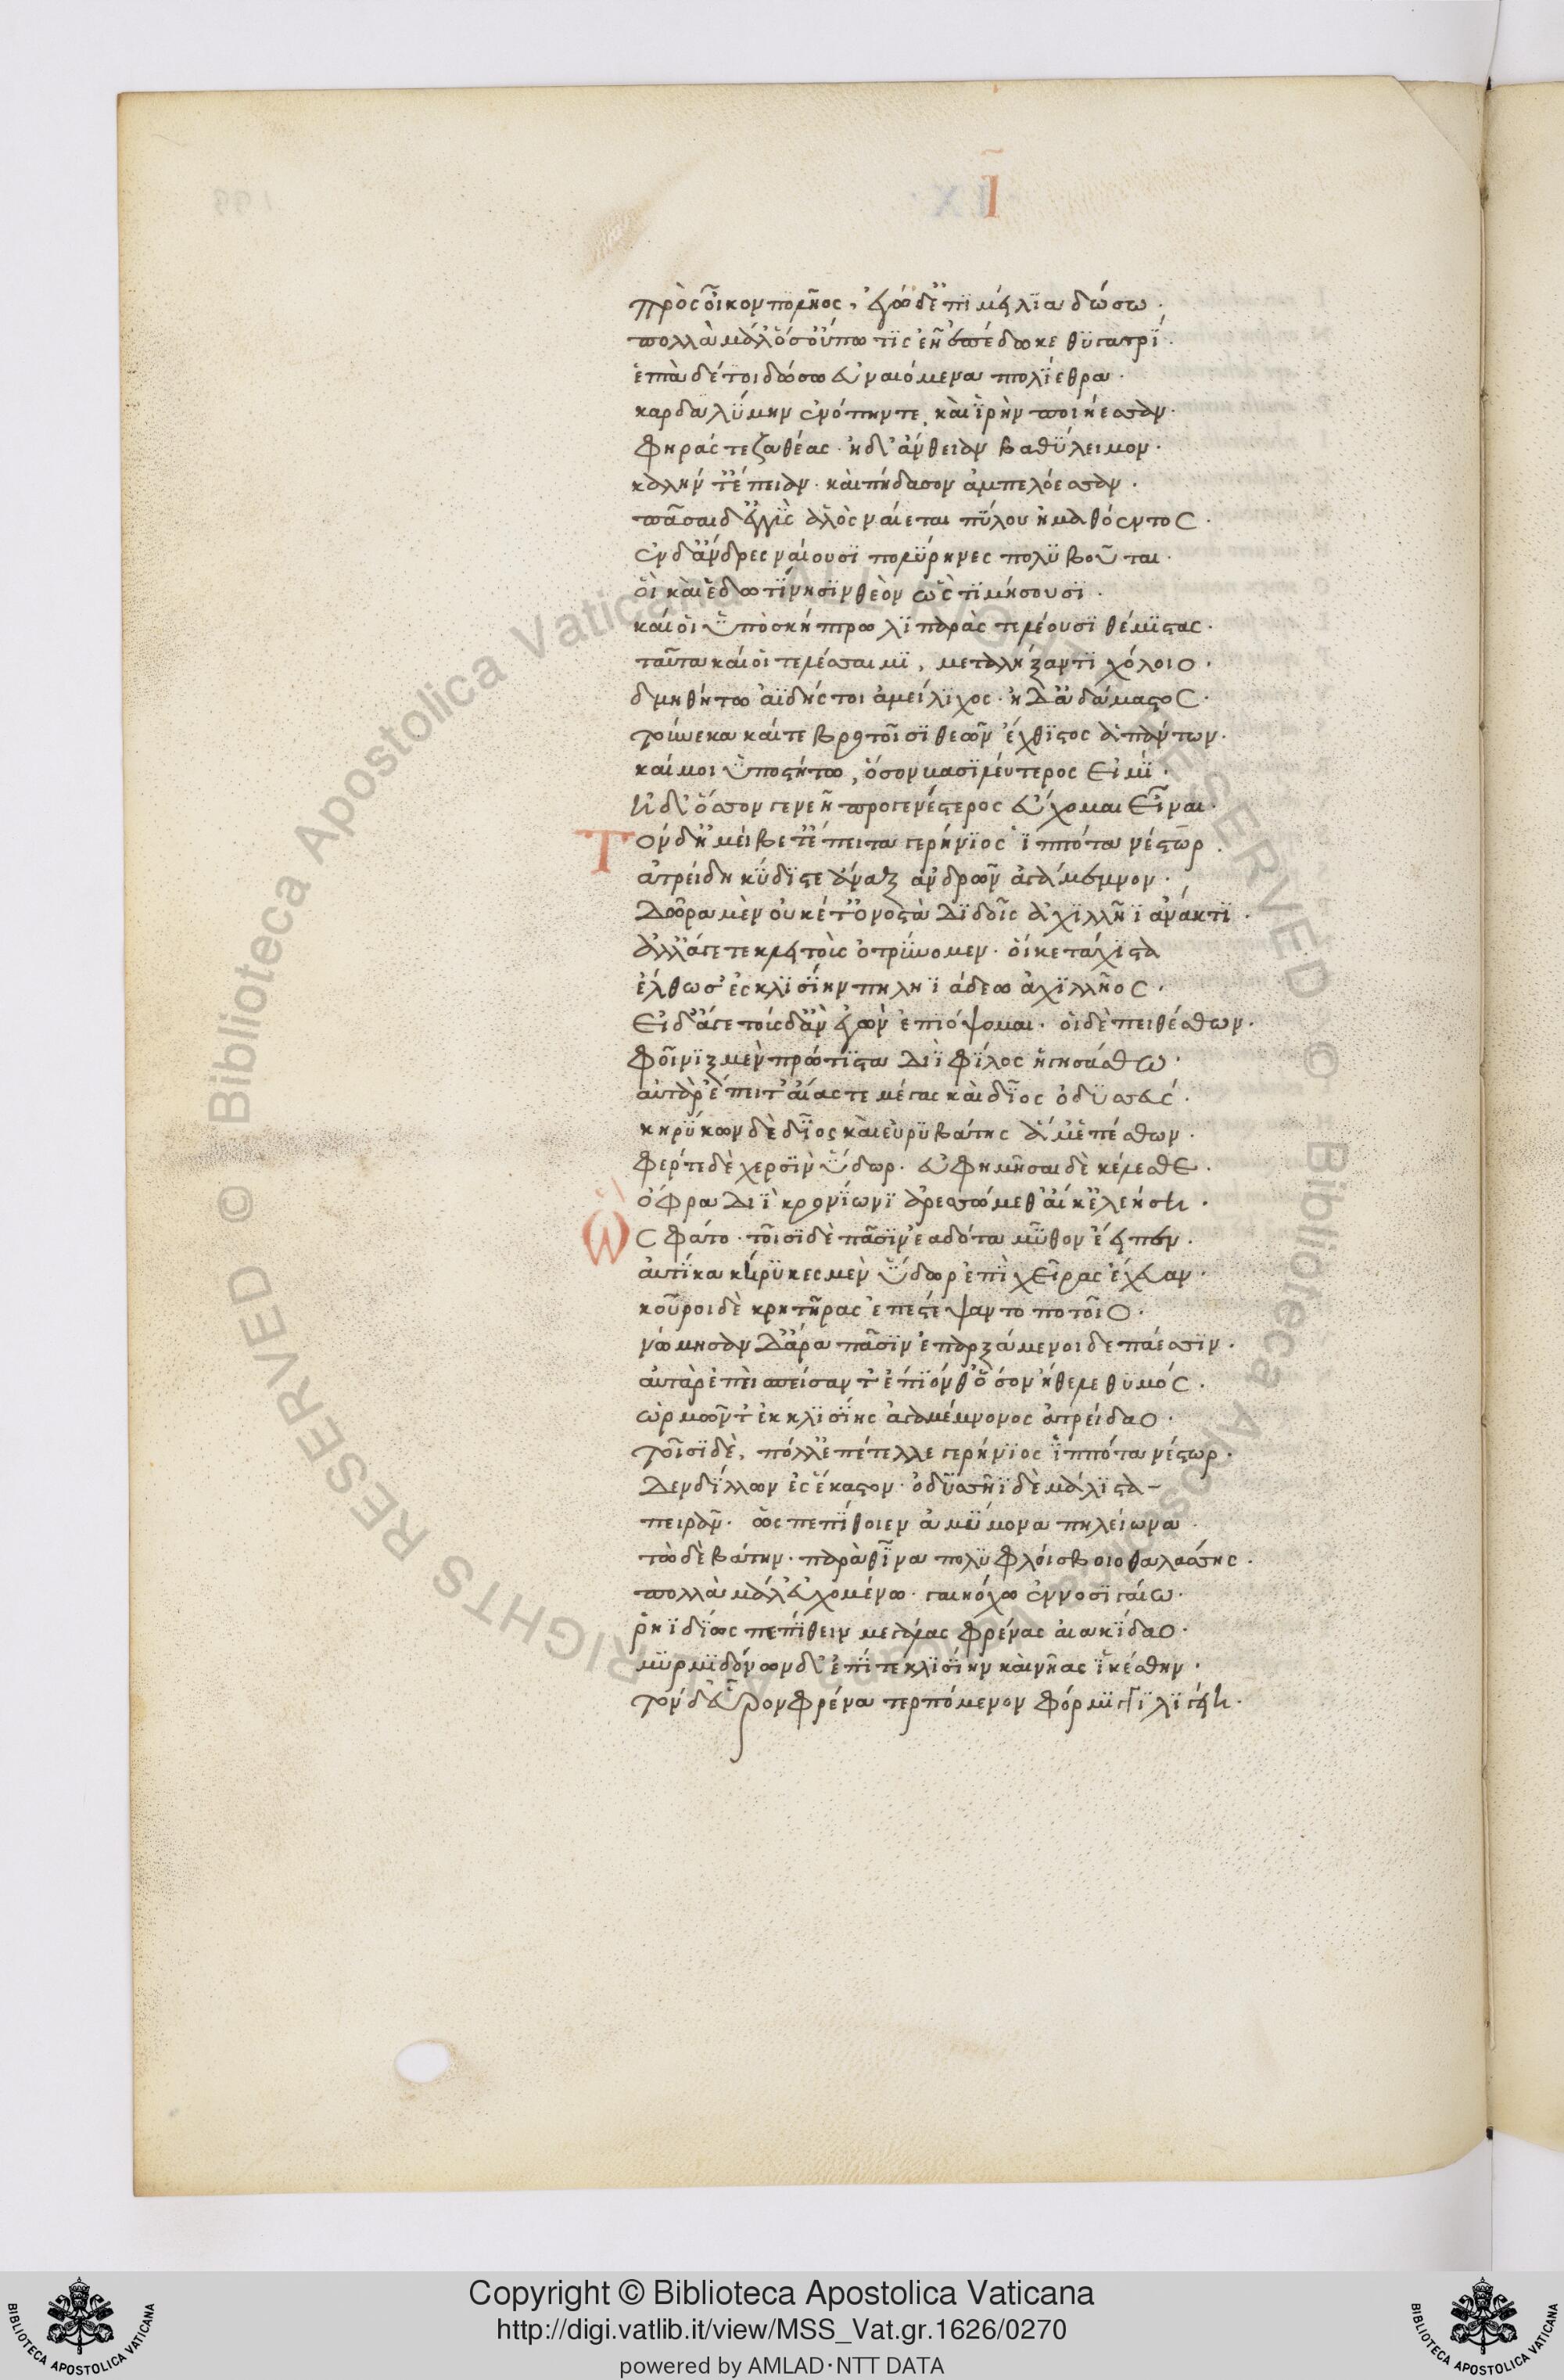 Ι
πρὸς οἶκον πηλῆος, ἐγὼ δ' ἐπιμείλια δώσω.
πολλὰ μάλ' ὅσ' οὔπω τις ἑῇ ἐπέδωκε θυγατρί.
ἑπτὰ δέ τοι δώσω εὐναιόμενα πτολίεθρα.
καρδαμύλην ἐνόπην τε, καὶ ἱρὴν ποιήεσσαν.
φηράς τε ζαθέας. ἠδ' ἄνθειαν βαθύλειμον.
καλήν τ' αἴπειαν. καὶ πήδασον ἀμπελόεσσαν.
πᾶσαι δ' ἐγγὺς ἁλὸς ναίεται πύλου ἠμαθόεντος.
ἐν δ' ἄνδρες ναίουσι πολύρηνες πολυβοῦται.
οἵ καὶ ἑ δωτίνησιν θεὸν ὣς τιμήσουσι.
καί οἱ ὑπὸ σκήπτρω λιπαρὰς τελέουσι θέμιστας.
ταῦτα καί οἱ τελέσαιμι, μεταλήξαντι χόλοιο.
δμηθήτω ἀΐδης τοι ἀμείλιχος. ἠδ' ἀδάμαστος.
τοὔνεκα καί τε βροτοῖσι θεῶν ἔχθιστος ἁπάντων.
καί μοι ὑποστήτω, ὅσον βασιλεύτερος εἰμί.
ἠδ' ὅσσον γενεῇ προγενέστερος εὔχομαι εἶναι.
Τὸν δ' ἠμείβετ' ἔπειτα γερήνιος ἱππότα νέστωρ.
ἀτρείδη κύδιστε ἄναξ ἀνδρῶν ἀγάμεμνον.
δῶρα μὲν οὐκέτ' ὀνοστὰ διδοῖς ἀχιλλῆϊ ἄνακτι.
ἀλλ' ἄγετε κλητοὺς ὀτρύνομεν. οἵ κε τάχιστα
ἔλθωσ' ἐς κλισίην πηληϊάδεω ἀχιλλῆος.
Εἰ δ' ἄγε τοὺς δ' ἂν ἐγὼν ἐπιόψομαι. οἱ δὲ πειθέσθων.
φοῖνιξ μὲν πρώτιστα διῒ φίλος ἡγησάσθω.
αὐτὰρ ἔπειτ' αἴας τε μέγας καὶ δῖος ὀδυσσεύς.
κηρύκων δὲ δῖος καὶ εὐρυβάτης ἅμ' ἑπέσθων.
φέρτε δὲ χερσὶν ὕδωρ. εὐφημῆσαι δὲ κέλεσθε.
ὄφρα διῒ κρονίωνι ἀρεσσώμεθ' αἴ κ' ἐλεήση.
Ὣς φάτο. τοῖσι δὲ πᾶσιν ἑαδότα μῦθον ἔειπεν.
αὐτίκα κήρυκες μὲν ὕδωρ ἐπὶ χεῖρας ἔχευαν.
κοῦροι δὲ κρητῆρας ἐπεστέψαντο ποτοῖο.
νώμησαν δ' ἄρα πᾶσιν ἐπαρξάμενοι δεπάεσσιν.
αὐτὰρ ἐπεὶ σπεῖσαν τ' ἔπιόν θ' ὅσον ἤθελε θυμός.
ὡρμῶντ' ἐκ κλισίης ἀγαμέμνονος ἀτρείδαο.
τοῖσι δὲ, πόλλ' ἐπέτελλε γερήνιος ἱππότα νέστωρ.
δενδίλλων ἐς ἕκαστον. ὀδυσσῆϊ δὲ μάλιστα
πειρᾶν. ὡς πεπίθοιεν ἀμύμονα πηλείωνα
τὼ δὲ βάτην. παρὰ θῖνα πολυφλοίσβοιο θαλάσσης.
πολλὰ μάλ' εὐχομένω. γαιηόχω ἐννοσιγαίω.
ῥηϊδίως πεπίθειν μεγάλας φρένας αἰακίδαο.
μυρμιδόνων δ' ἐπί τε κλισίην καὶ νῆας ἱκέσθην.
τὸν δ' εὗρον φρένα τερπόμενον φόρμιγγι λιγείη.
Copyright © Biblioteca Apostolica Vaticana
http://digi.vatlib.it/view/MSS_Vat.gr.1626/0270
powered by AMLAD·NTT DATA